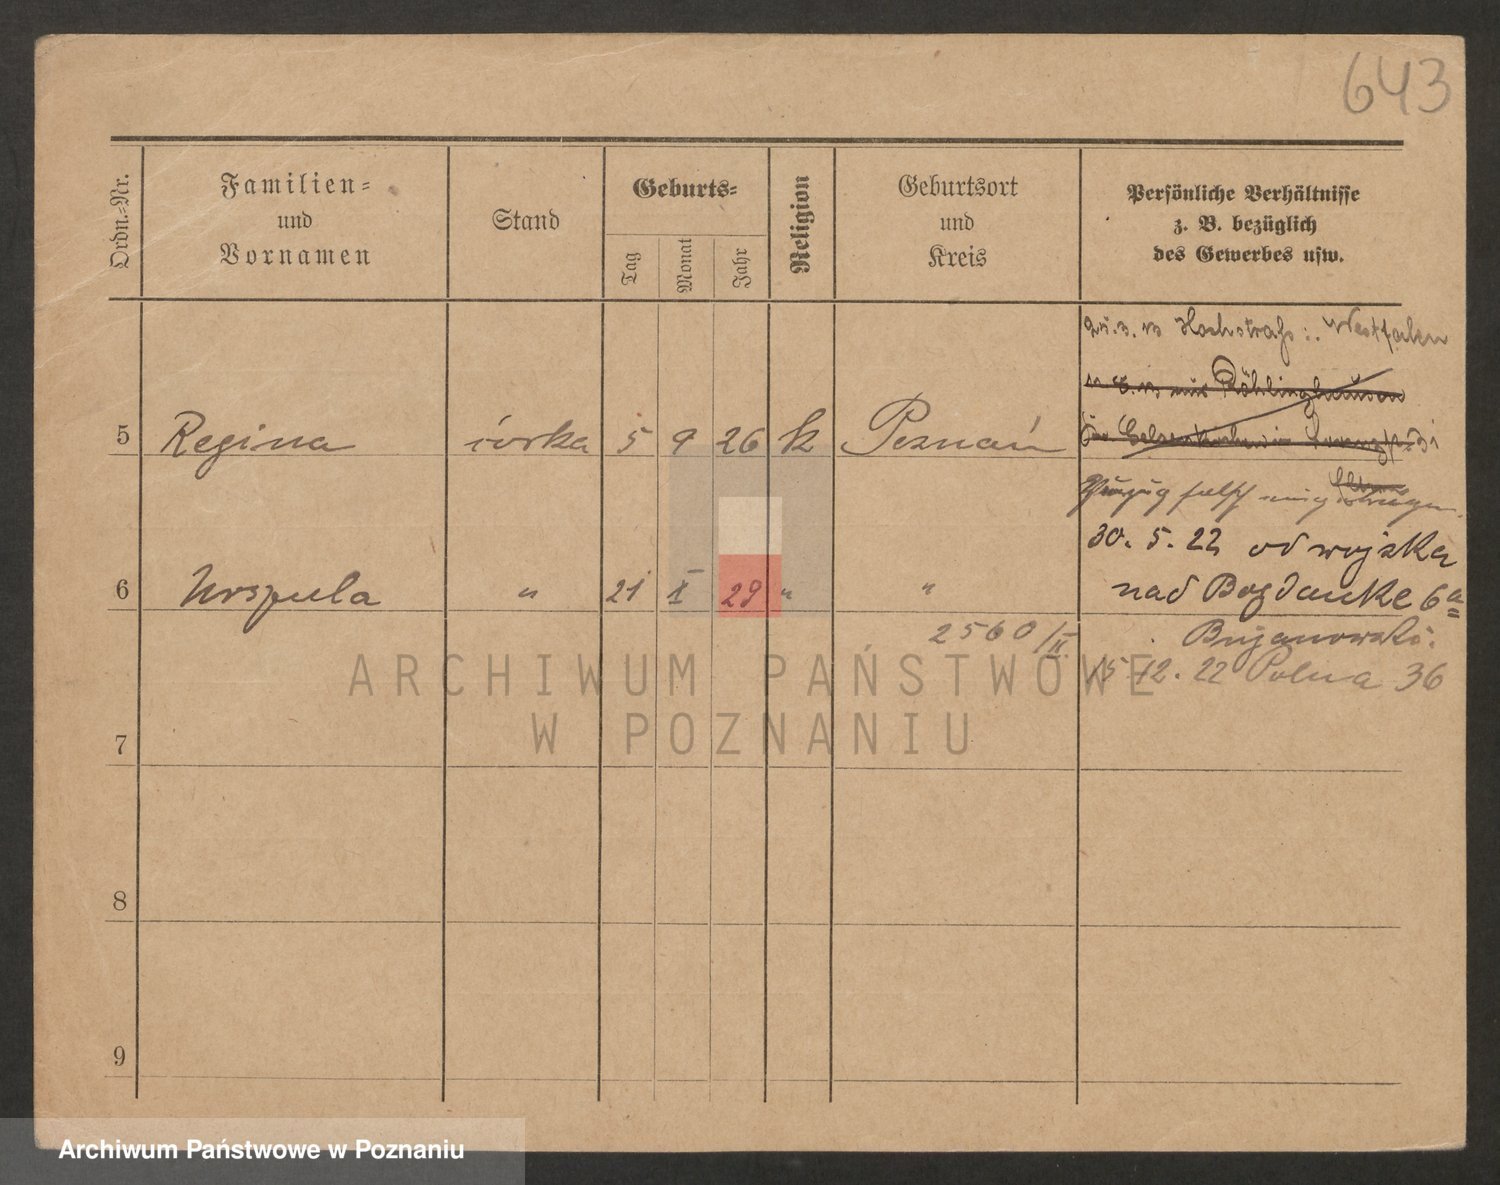 643
Ordn.-Nr.
Familien-
und
Vornamen
Stand
Geburts-
Tag
Monat
Jahr
Religion
Geburtsort
und
Kreis
Persönliche Verhältnisse
z. B. bezüglich
des Gewerbes usw.
25.3.13 Hochstraß: Westfalen
Röhlinghausen
5 Regina córka 5 9 26 k Poznań
Zuzug falsch
30. 5. 22 od wojska
6 Urszula " 21 X 29 " " nad Bogdanke 6a
2560/II
15 12. 22 Polna 36
7
8
9
ARCHIWUM PAŃSTWOWE
W POZNANIU
Archiwum Państwowe w Poznaniu